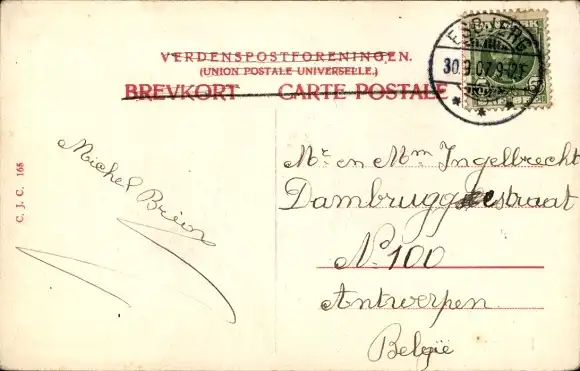 VERDENSPOSTFORENINGEN.
(UNION POSTALE UNIVERSELLE.)
BREVKORT CARTE POSTALE
ESBJERG
30.9.07.9-0F.
C. J. C. 165
Michel
Mr. en Mm Ingelbrecht
Dambruggestraat
No. 100
Antwerpen
België